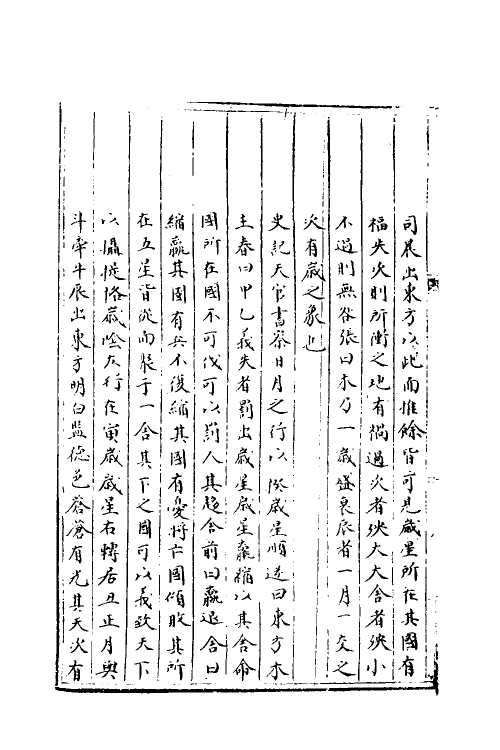 司晨出東方以此而推餘皆可見歲星所在其國有
福失次則所衝之地有禍過次者殃大大舍者殃小
不過則無咎張曰木乃一歲盛衰辰者一月一交之
次有歲之象也
史記天官書察日月之行以揆歲星順逆曰東方木
主春曰甲乙義失者罰出歲星歲星贏縮以其舍命
國所在國不可伐可以罰人其趨舍前曰贏退舍曰
縮贏其國有兵不復縮其國有憂將亡國傾敗其所
在五星皆從而聚于一舍其下之國可以義致天下
以攝提格歲陰左行在寅歲歲星右轉居丑正月與
斗牽牛晨出東方明曰監德色蒼蒼有光其失次有